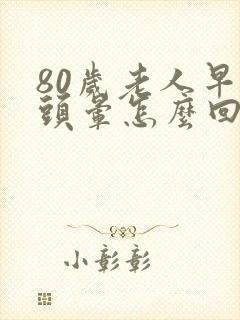 80歲老人早
頭暈怎麼回
小彰彰